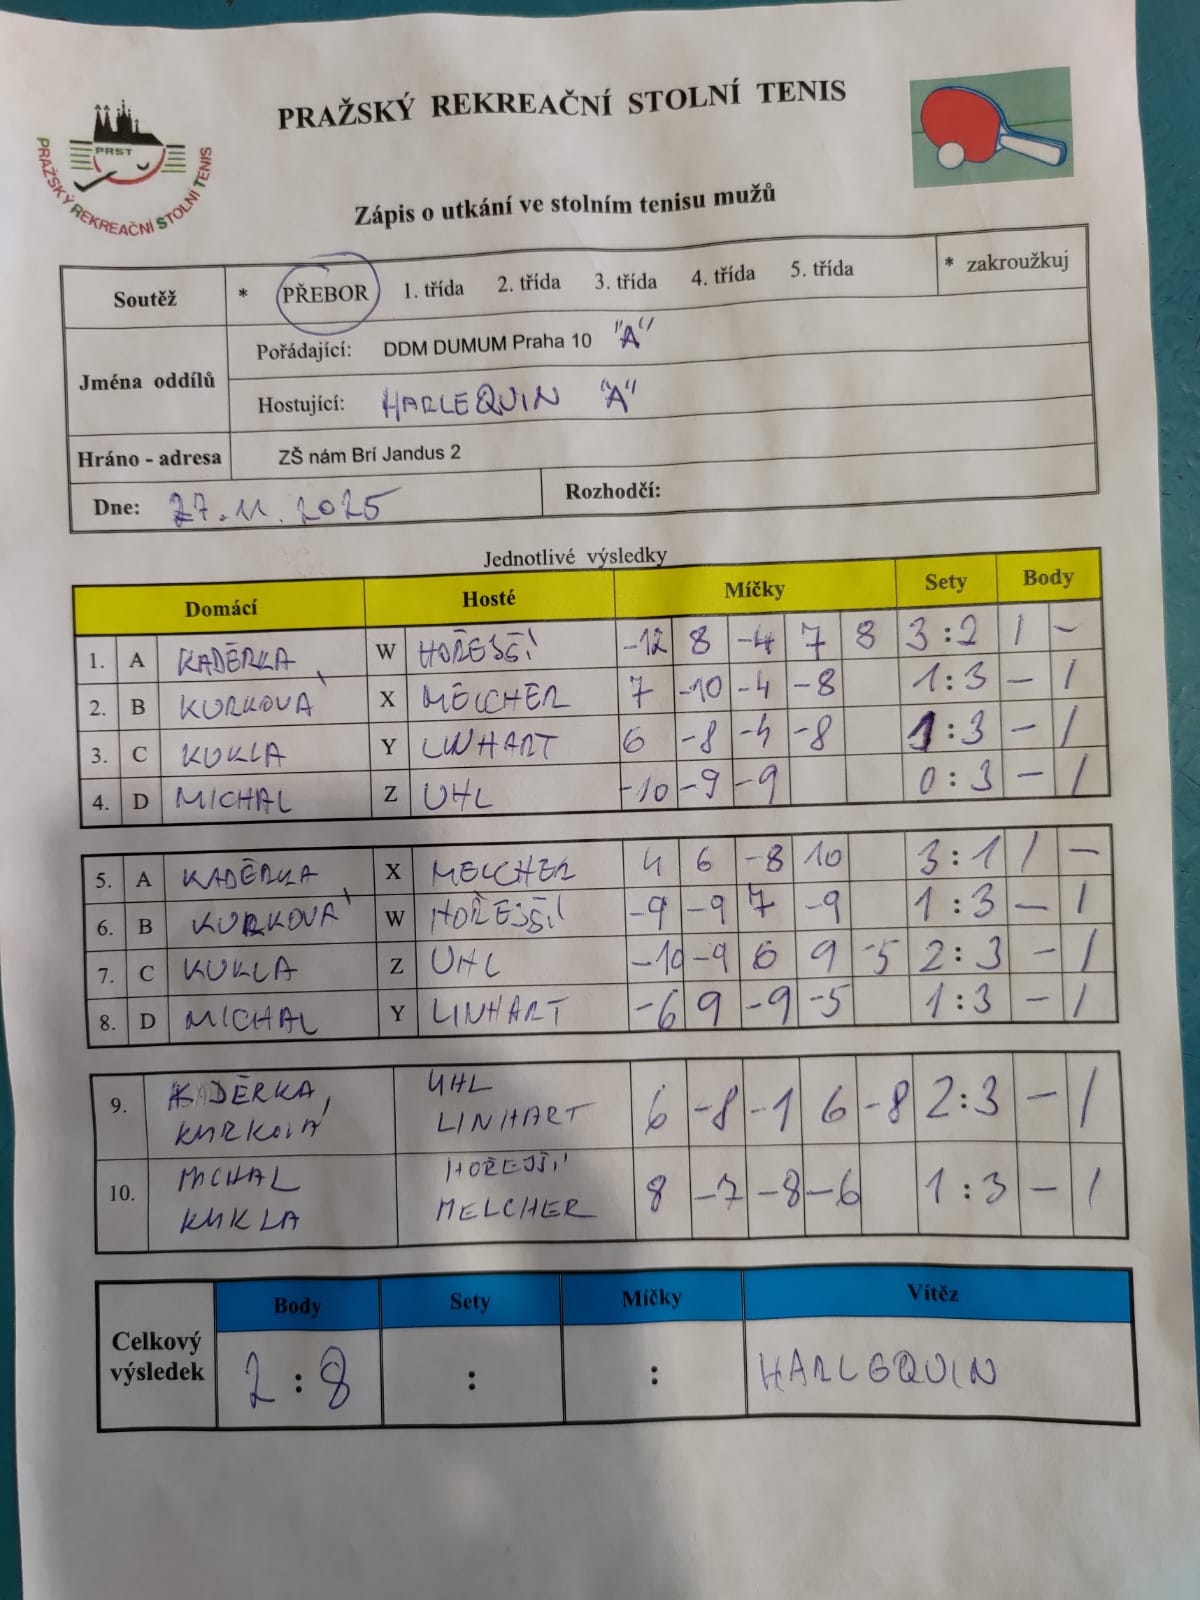 PRAŽSKÝ REKREAČNÍ STOLNÍ TENIS
PRST
PRAŽSKÝ REKREAČNÍ STOLNÍ TENIS
Zápis o utkání ve stolním tenisu mužů
Soutěž * PŘEBOR 1. třída 2. třída 3. třída 4. třída 5. třída * zakroužkuj
Jména oddílů
Pořádající: DDM DUMUM Praha 10 "A"
Hostující: HARLEQUIN "A"
Hráno - adresa ZŠ nám Brí Jandus 2
Dne: 27.11.2025 Rozhodčí:
Jednotlivé výsledky
Domácí Hosté Míčky Sety Body
1. A KADĚRKA W HOŘEJŠÍ -12 8 -4 7 8 3:2 1 -
2. B KURKOVÁ X MELCHER 7 -10 -4 -8 1:3 - 1
3. C KUKLA Y LINHART 6 -8 -4 -8 1:3 - 1
4. D MICHAL Z UHL -10 -9 -9 0:3 - 1
5. A KADĚRKA X MELCHER 4 6 -8 10 3:1 1 -
6. B KURKOVÁ W HOŘEJŠÍ -9 -9 7 -9 1:3 - 1
7. C KUKLA Z UHL -10 -9 6 9 -5 2:3 - 1
8. D MICHAL Y LINHART -6 9 -9 -5 1:3 - 1
9. KADĚRKA, UHL 6 -8 -1 6 -8 2:3 - 1
KURKOVÁ LINHART
10. MICHAL HOŘEJŠÍ 8 -7 -8 -6 1:3 - 1
KUKLA MELCHER
Celkový výsledek
Body Sety Míčky Vítěz
2:8 : : HARLEQUIN